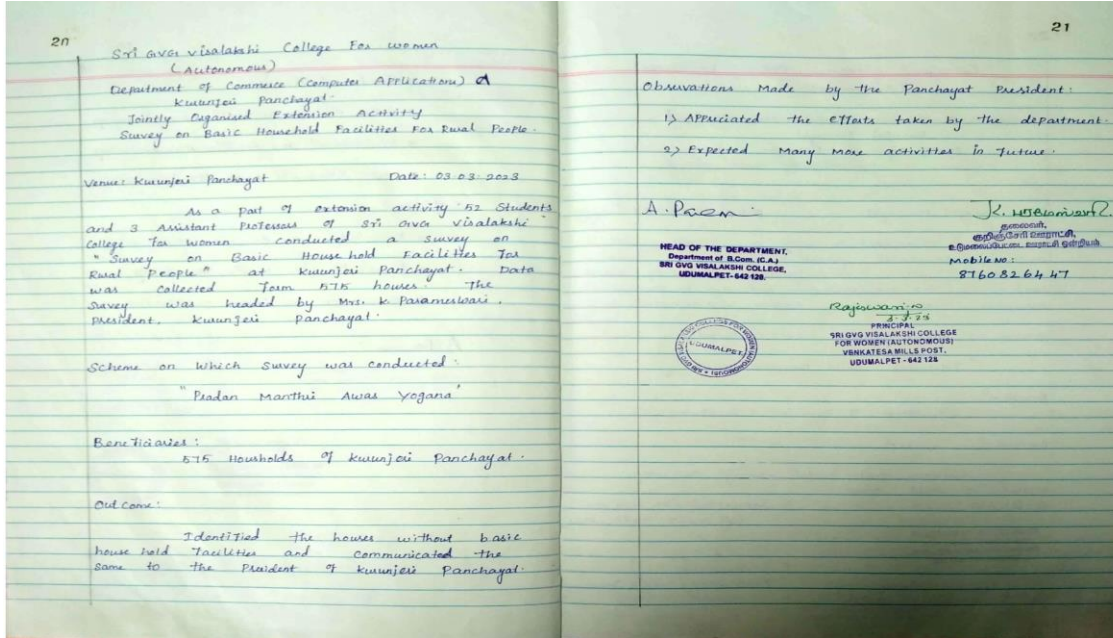 20
Sri GVG Visalakshi College For Women
(Autonomous)
Department of Commerce (Computer Applications) &
Kurunjeri Panchayat.
Jointly Organised Extension Activity
Survey on Basic Household Facilities For Rural People.
Venue: Kurunjeri Panchayat Date: 03.03.2023
As a part of extension activity 52 Students
and 3 Assistant Professors of Sri GVG Visalakshi
College for Women conducted a survey on
"Survey on Basic House hold Facilities for
Rural People" at Kurunjeri Panchayat. Data
was collected form 575 houses. The
Survey was headed by Mrs. K Parameswari,
President, Kurunjeri Panchayat.
Scheme on which Survey was conducted.
"Pradan Manthri Awas Yogana"
Beneficiaries:
575 Housholds of Kurunjeri Panchayat.
Out come:
Identified the houses without basic
house hold facilities and communicated the
same to the President of Kurunjeri Panchayat.
21
Observations Made by the Panchayat President:
1) Appreciated the efforts taken by the department.
2) Expected Many More activities in future.
HEAD OF THE DEPARTMENT,
Department of B.Com. (C.A.)
SRI GVG VISALAKSHI COLLEGE,
UDUMALPET - 642 128.
தலைவர்,
குறிஞ்சேரி ஊராட்சி,
உடுமலைப்பேட்டை ஊராட்சி ஒன்றியம்
Mobile No:
8760826447
UDUMALPET.
Rajeswari
PRINCIPAL
SRI GVG VISALAKSHI COLLEGE
FOR WOMEN (AUTONOMOUS)
VENKATESA MILLS POST,
UDUMALPET - 642 128